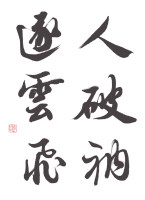 人破衲
逐雲飛